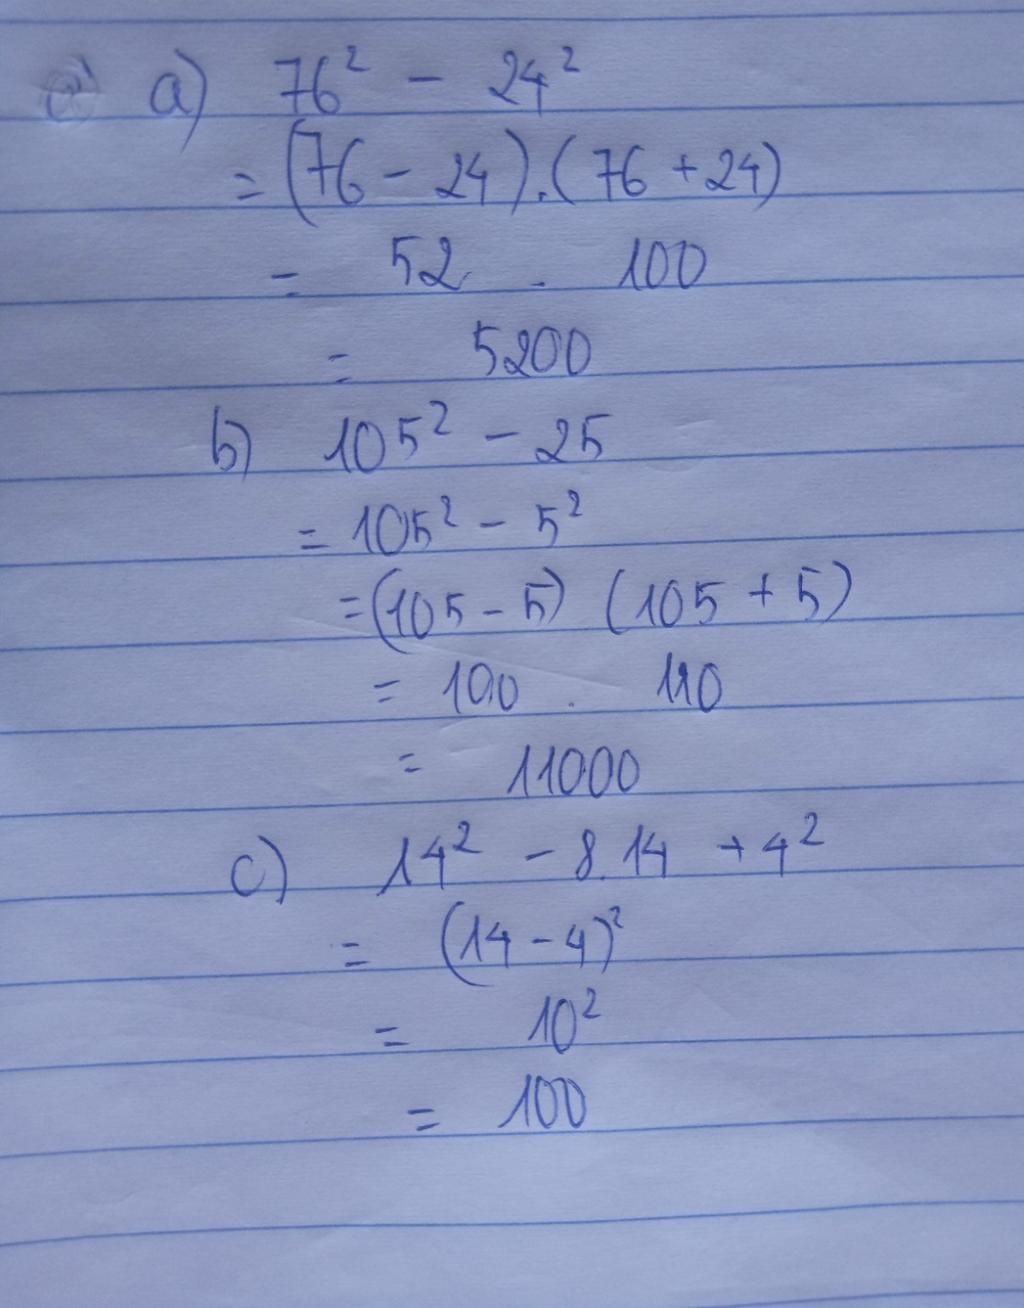 a) 76² - 24²
= (76 - 24).(76 + 24)
= 52 . 100
= 5200
b) 105² - 25
= 105² - 5²
= (105 - 5) (105 + 5)
= 100 . 110
= 11000
c) 14² - 8.14 + 4²
= (14 - 4)²
= 10²
= 100